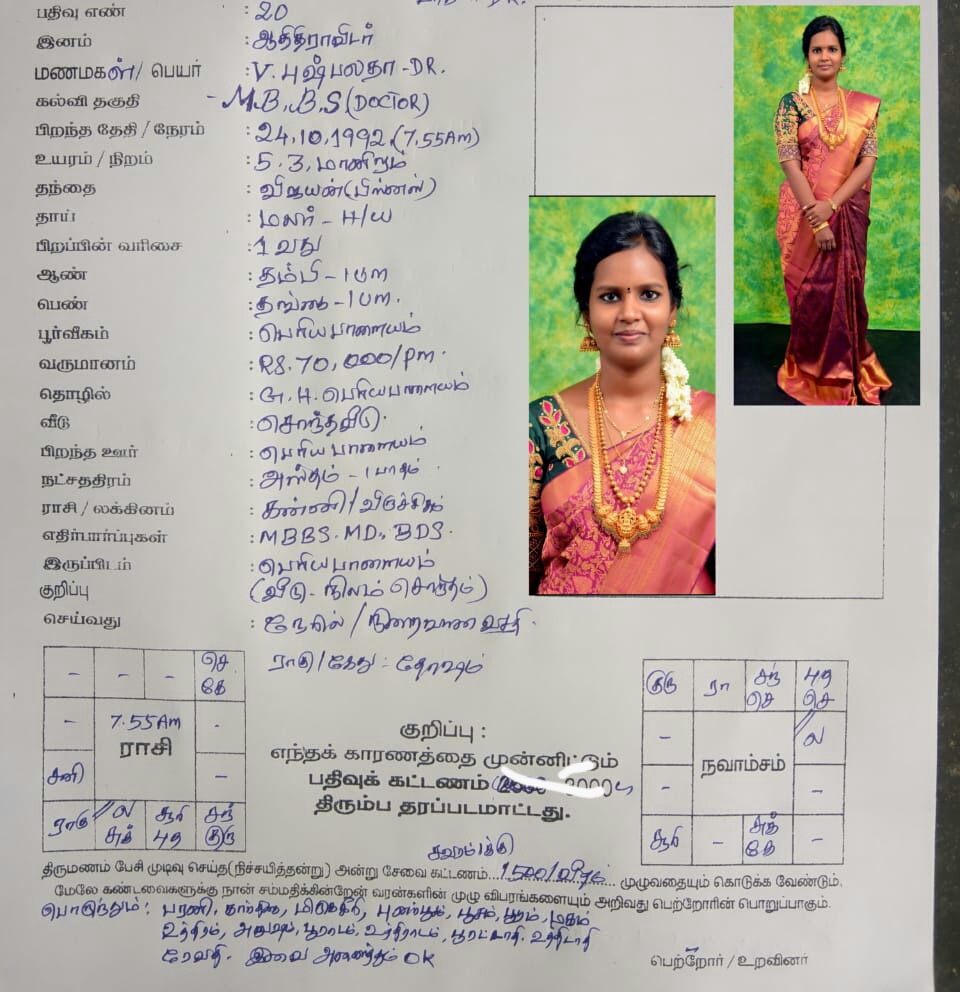 பதிவு எண் : 20
இனம் : ஆதிதிராவிடர்
மணமகள் / பெயர் : V. புஷ்பலதா - DR.
கல்வி தகுதி - M.B.B.S (DOCTOR)
பிறந்த தேதி / நேரம் : 24.10.1992. (7.55Am)
உயரம் / நிறம் : 5.3, மாநிறம்
தந்தை : விஜயன் (பிஸ்னஸ்)
தாய் : மலர் - H/W
பிறப்பின் வரிசை : 1 வது
ஆண் : தம்பி - 1
பெண் : தங்கை - 1
பூர்வீகம் : பெரியபாளையம்
வருமானம் : RS. 70,000/Pm.
தொழில் : G.H. பெரியபாளையம்
வீடு : சொந்தவீடு
பிறந்த ஊர் : பெரியபாளையம்
நட்சத்திரம் : அஸ்தம் - 1 பாதம்
ராசி / லக்கினம் : கன்னி / விருச்சிகம்
எதிர்பார்ப்புகள் : MBBS. MD., BDS.
இருப்பிடம் : பெரியபாளையம்
குறிப்பு (வீடு - நிலம் சொந்தம்)
செய்வது : நேரில் /
ராகு / கேது : தோஷம்
- - - செ கே
- 7.55Am -
ராசி
சனி -
ராகு ல சுக் சூரி புத சந் குரு
குரு ரா சந் செ புத செ
- ல
நவாம்சம்
- -
சூரி - சுக் கே -
குறிப்பு :
எந்தக் காரணத்தை முன்னிட்டும்
பதிவுக் கட்டணம் 3000
திரும்ப தரப்படமாட்டாது.
திருமணம் பேசி முடிவு செய்த(நிச்சயித்தன்று) அன்று சேவை கட்டணம்...1500/... முழுவதையும் கொடுக்க வேண்டும்.
மேலே கண்டவைகளுக்கு நான் சம்மதிக்கின்றேன் வரன்களின் முழு விபரங்களையும் அறிவது பெற்றோரின் பொறுப்பாகும்.
பொருந்தும் : பரணி, கார்த்திகை, மிருகசீரிடம், புனர்பூசம், பூசம், பூரம், மகம்
உத்திரம், அனுஷம், பூராடம், உத்திராடம், பூரட்டாதி, உத்திரட்டாதி
ரேவதி. இவை அனைத்தும் OK
பெற்றோர் / உறவினர்